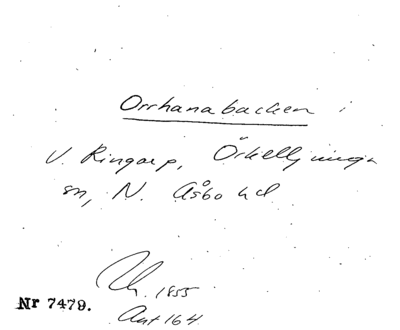 Orrhanabacken i
V. Ringarp, Örkelljunga
sn, N. Åsbo hd
1855
Nr 7479.
Ant 164